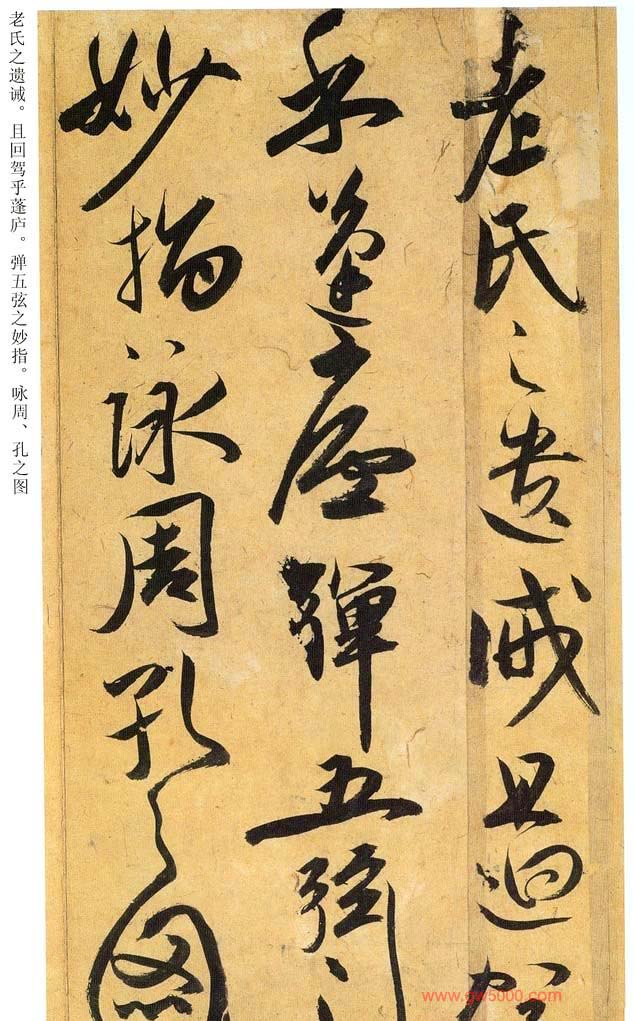 老氏之遺誡且迴
乎蓬廬彈五弦之
妙指詠周孔之圖
老氏之遗诫。且回驾乎蓬庐。弹五弦之妙指。咏周、孔之图
www.gw5000.com